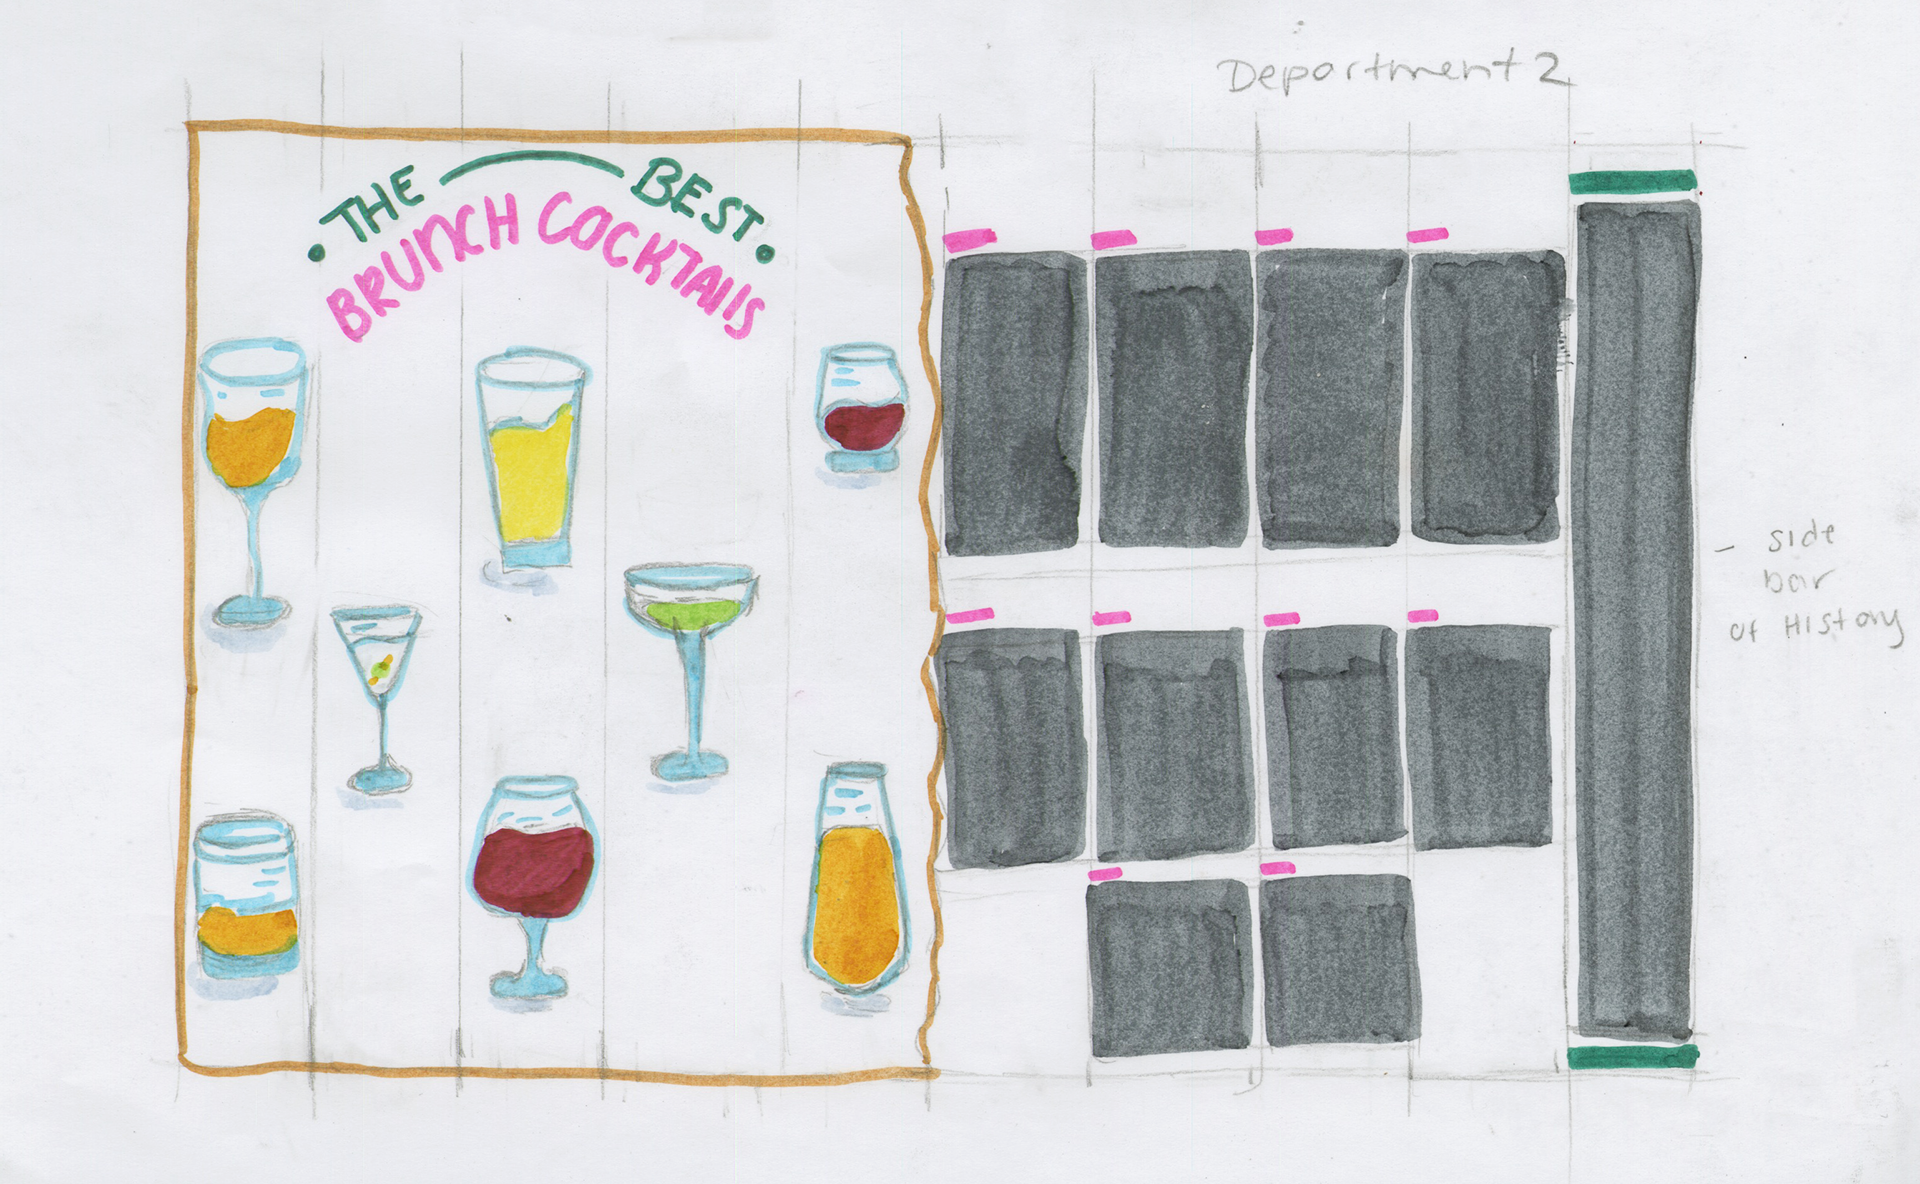 Department 2
THE BEST
BRUNCH COCKTAILS
- side
bar
of History